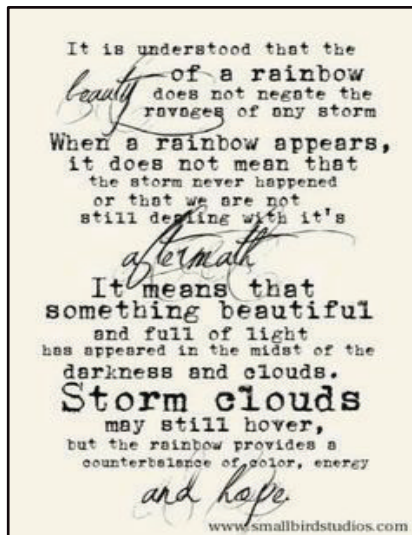 It is understood that the
beauty of a rainbow
does not negate the
ravages of any storm
When a rainbow appears,
it does not mean that
the storm never happened
or that we are not
still dealing with it's
aftermath
It means that
something beautiful
and full of light
has appeared in the midst of the
darkness and clouds.
Storm clouds
may still hover,
but the rainbow provides a
counterbalance of color, energy
and hope.
www.smallbirdstudios.com